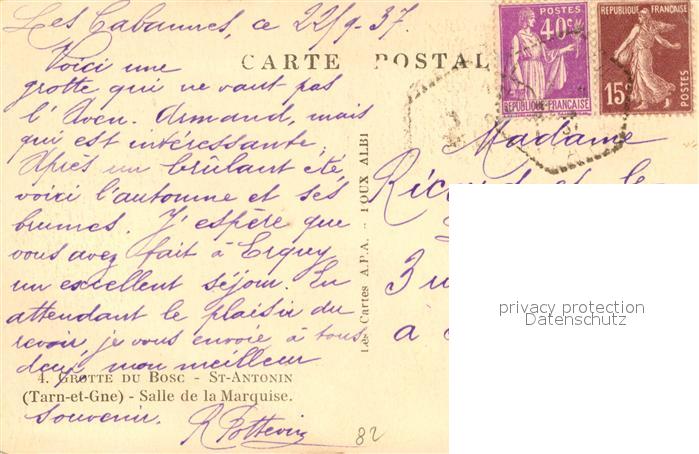 Les Cabannes, ce 22/9-37.
CARTE POSTAL
POSTES
40c
RÉPUBLIQUE FRANÇAISE
REPUBLIQUE FRANÇAISE
15c
POSTES
Voici une
grotte qui ne vaut pas
l'Aven. Armand, mais
qui est intéressante.
Après un brûlant été,
voici l'automne et ses
brumes. J'espère que
vous avez fait à Erquy
un excellent séjour. En
attendant le plaisir du
revoir, je vous envoie à tous
deux, mon meilleur
souvenir.
4. GROTTE DU BOSC - ST-ANTONIN
(Tarn-et-Gne) - Salle de la Marquise.
Les Cartes A.P.A. - POUX ALBI
Madame
3
a
82
privacy protection
Datenschutz